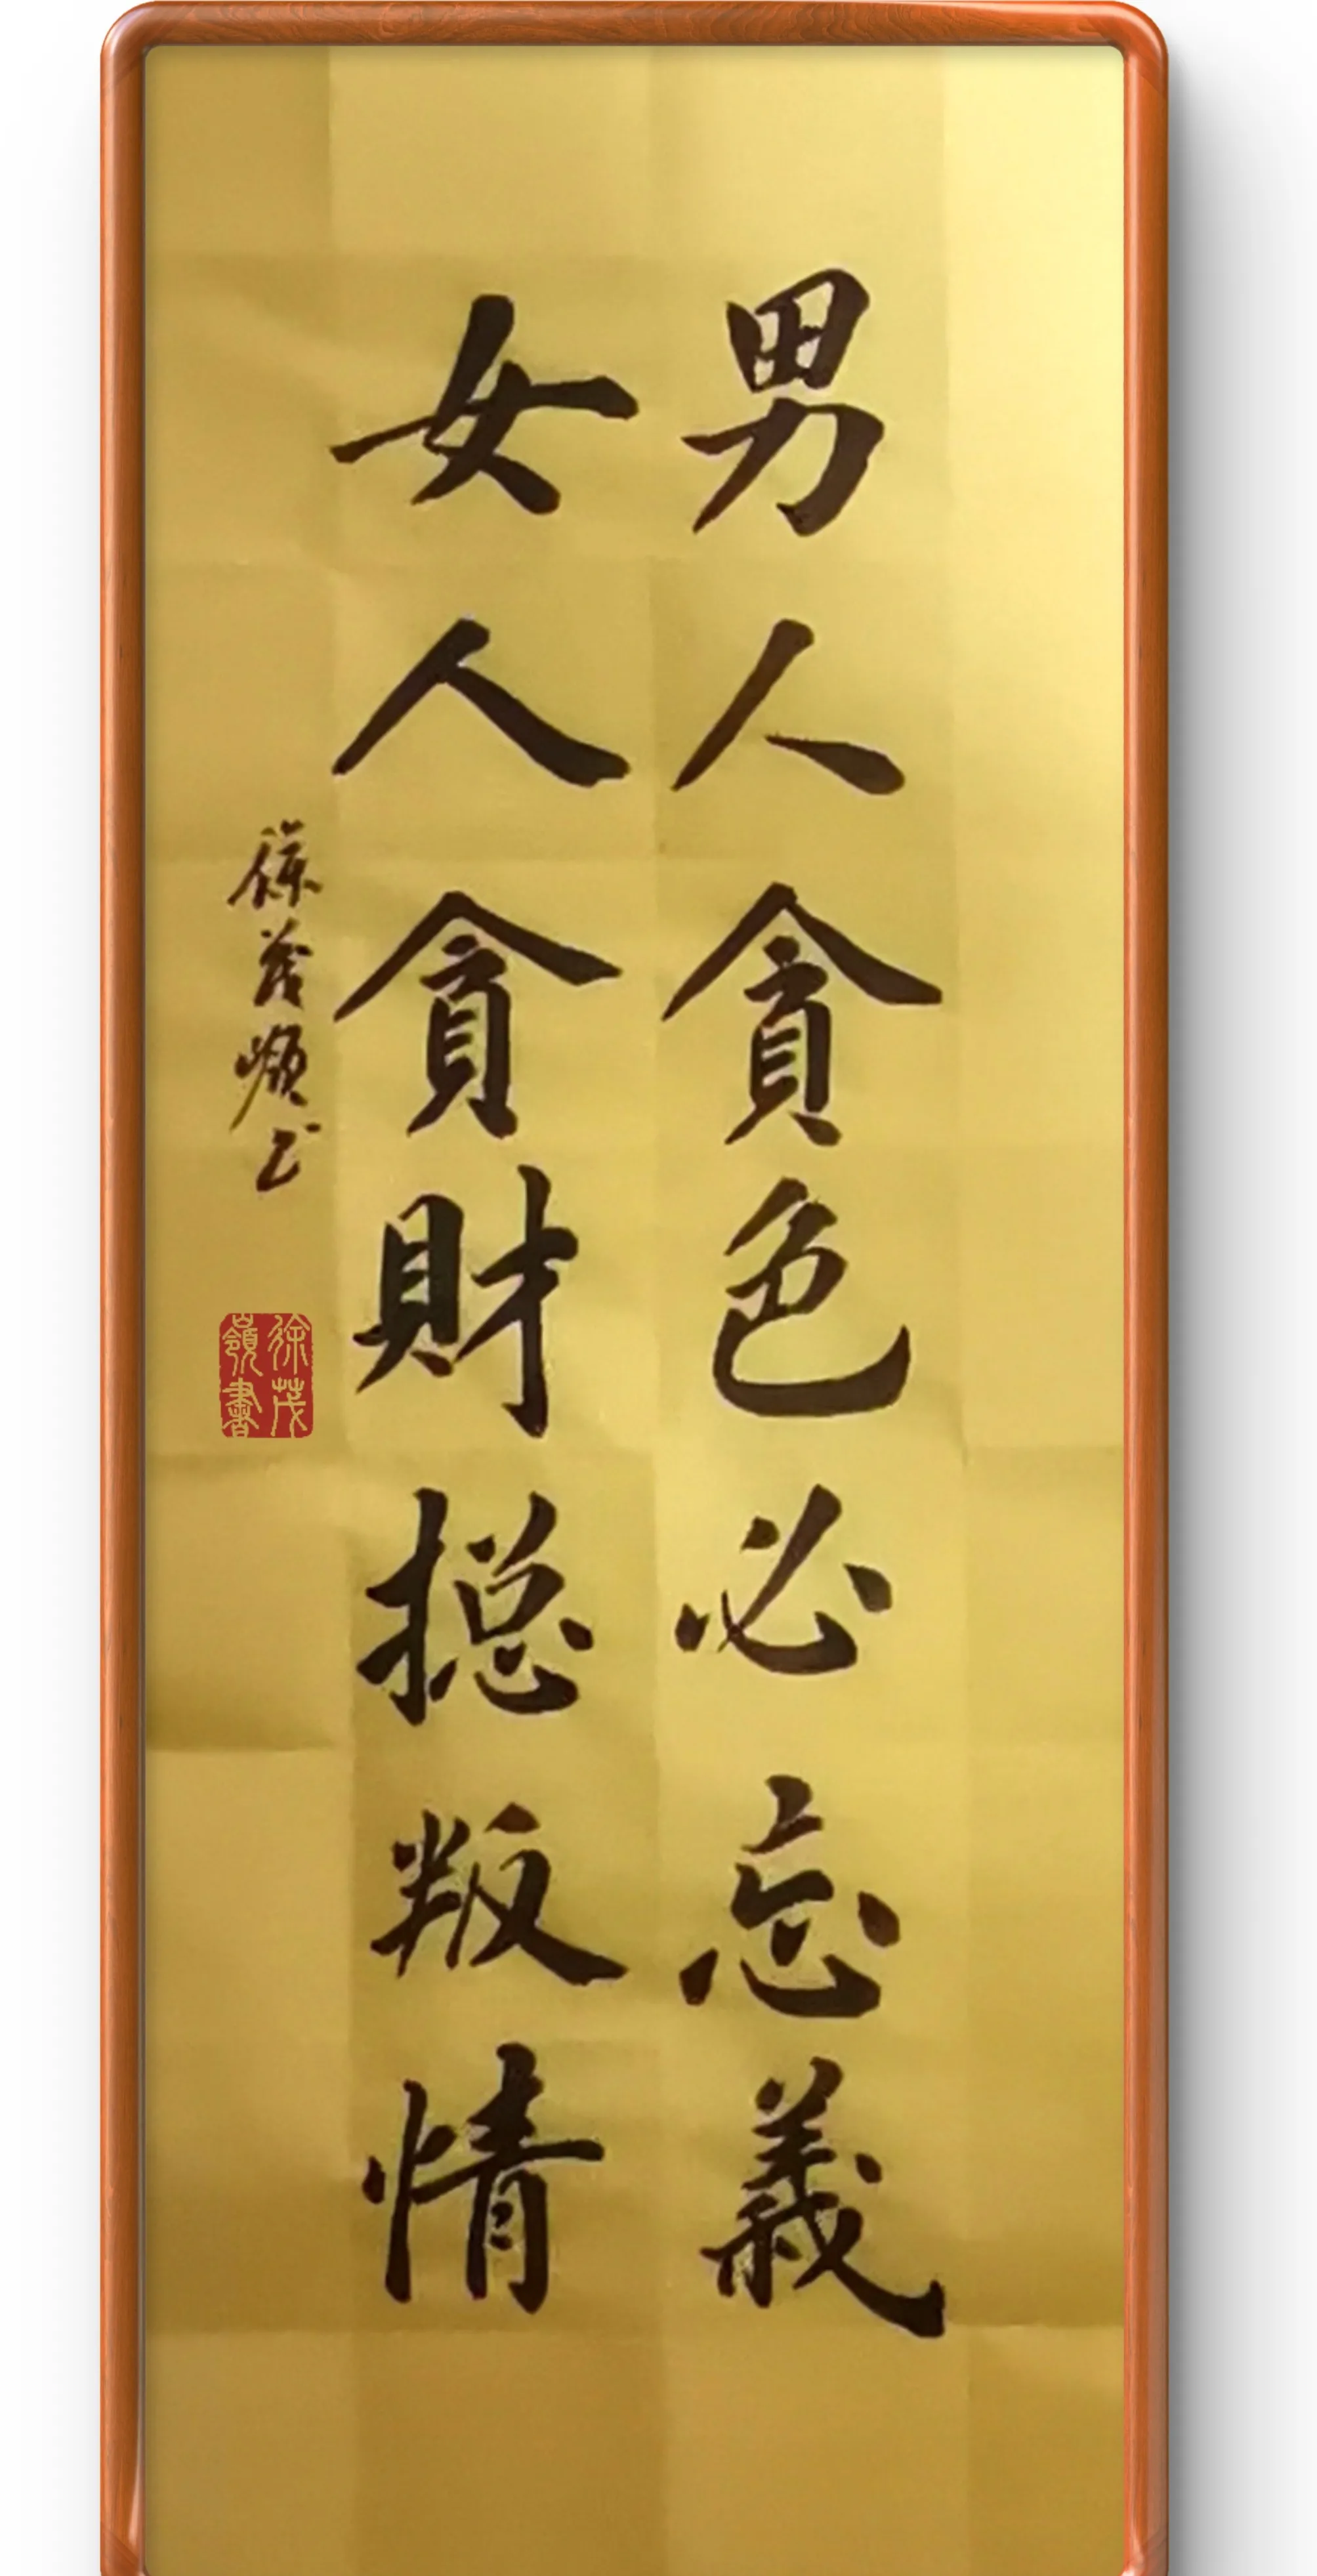 男人貪色必忘義
女人貪財摠叛情
徐茂嶺书
徐茂
嶺書